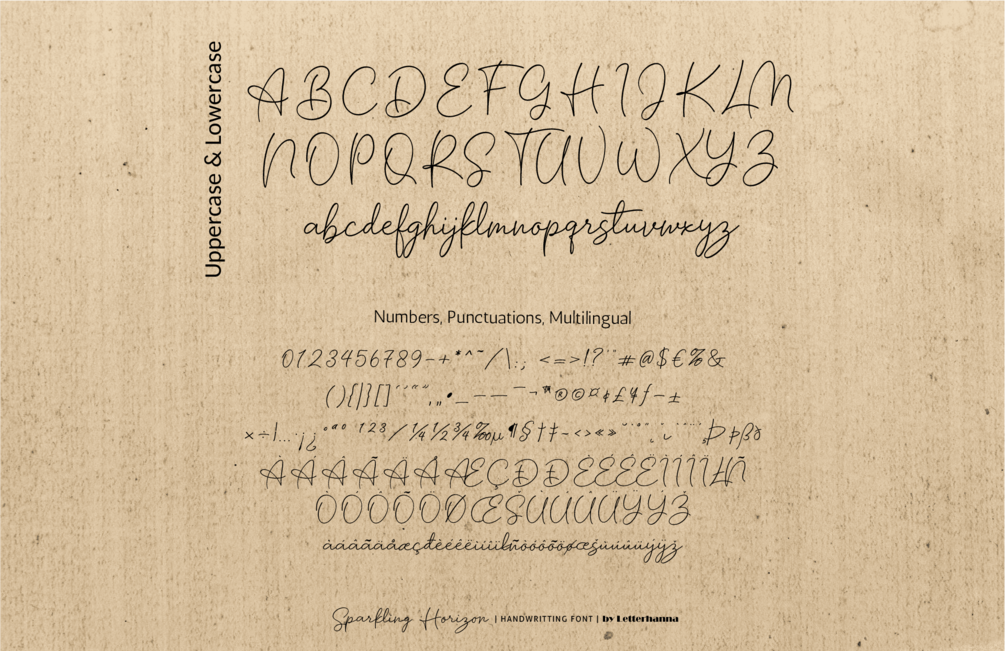 Uppercase & Lowercase
ABCDEFGHIJKLM
NOPQRSTUVWXYZ
abcdefghijklmnopqrstuvwxyz
Numbers, Punctuations, Multilingual
0123456789-+*^~/\:; <=>!?¨#@$€%&
(){|}[]'‘“",„•_–—¯¬™®©¤¢£¥ƒ−±
×÷|…¡¿ºªº¹²³⁄¼½¾‰µ¶§†‡-‹›«» Þþßð
ÀÁÂÃÄÅÆÇÐĐÈÉÊËÌÍÎÏŁÑ
ÒÓÔÕÖØŒŠÙÚÛÜÝŸŽ
àáâãäåæçđèéêëìíîïłñòóôõöøœšùúûüýÿž
Sparkling Horizon | HANDWRITTING FONT | by Letterhanna